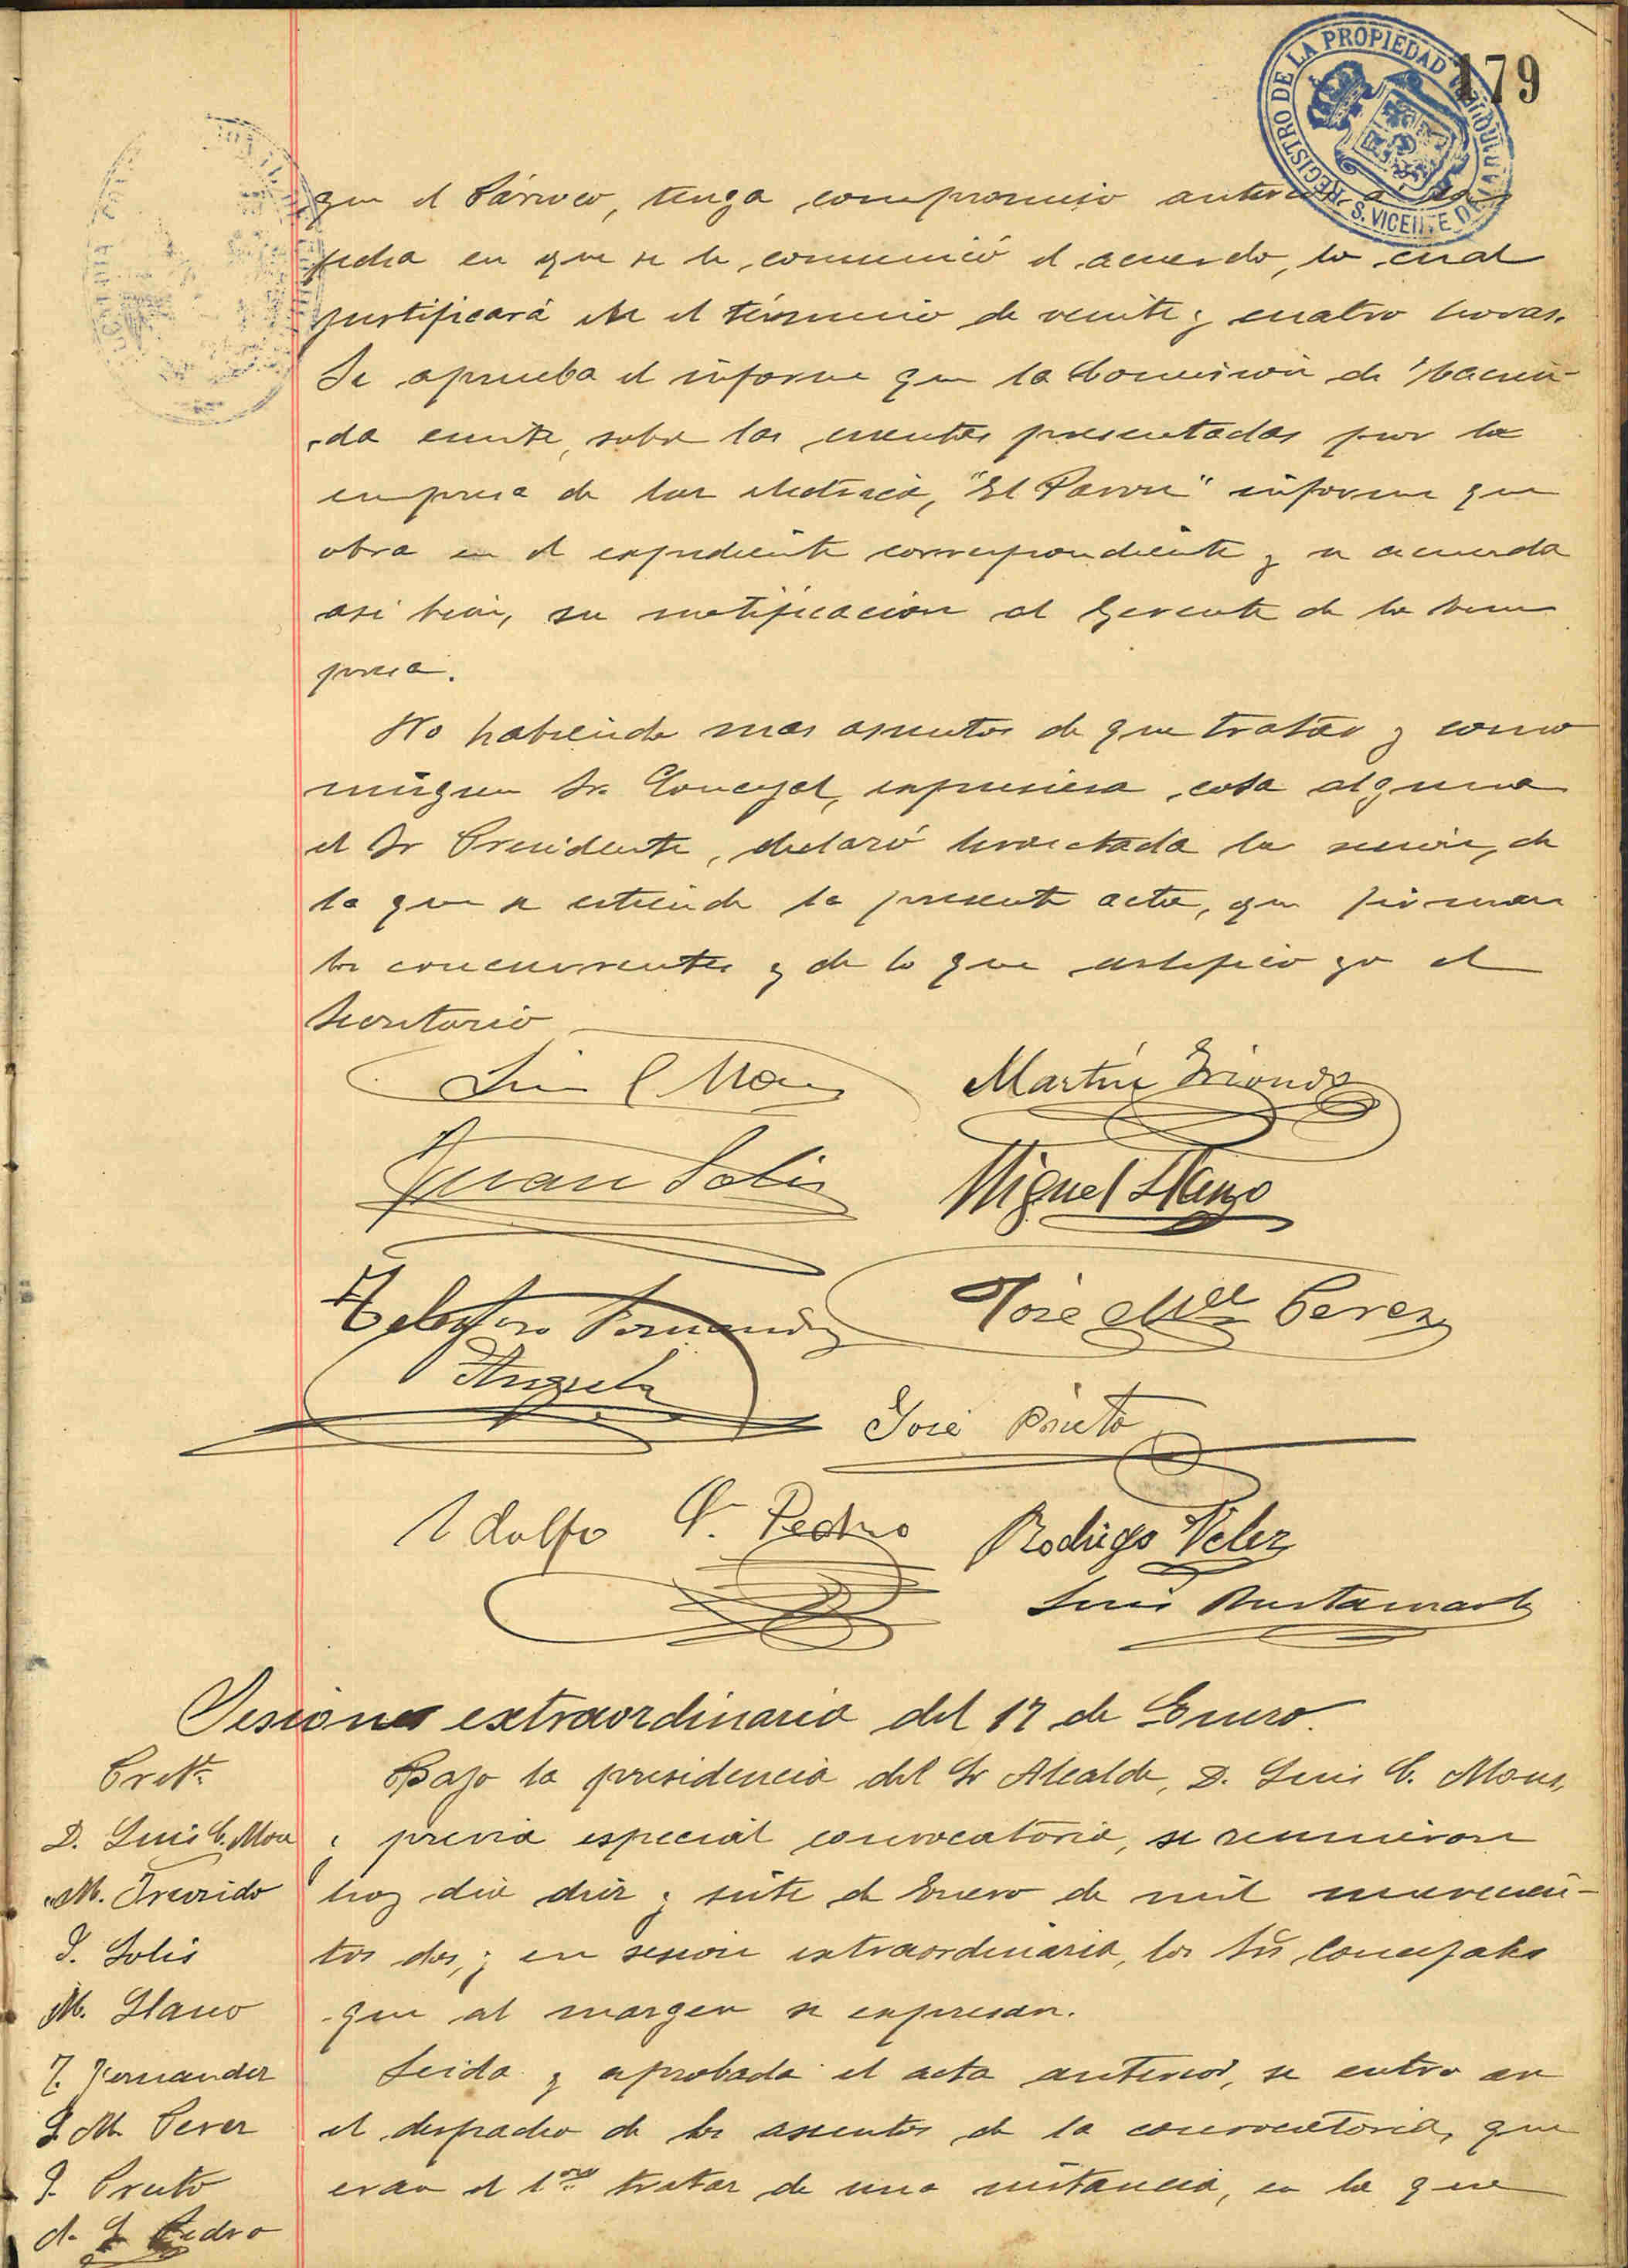 179
REGISTRO DE LA PROPIEDAD
S. VICENTE DE LA BARQUERA
que el Párroco, tenga compromiso anterior a la
fecha en que se le comunicó el acuerdo, lo cual
justificará en el término de veinte y cuatro horas.
Se aprueba el informe que la Comision de Hacien-
da emite, sobre las cuentas presentadas por la
empresa de luz electrica, "El" informe que
obra en el expediente correspondiente y se acuerda
asi bien, su notificacion al Gerente de la Em
presa.
No habiendo mas asuntos de que tratar y como
ningun Sr. Concejal, expusiera cosa alguna
el Sr Presidente, declaró levantada la sesion, de
la que se estiende la presente acta, que firman
los concurrentes y de lo que certifico yo el
Secretario
Luis C Mou
Martin
Juan Solis
Miguel Llano
Telesforo Fernandez
José Mª Perez
José Prieto
Adolfo S. Pedro
Rodrigo Velez
Luis Bustamante
Sesion extraordinaria del 17 de Enero.
Bajo la presidencia del Sr Alcalde, D. Luis C. Mou,
D. Luis C. Mou
y previa especial convocatoria, se reunieron
hoy dia diez y siete de Enero de mil novecien-
J. Solis
tos dos, y en sesion extraordinaria, los Srs Concejales
M. Llano
que al margen se expresan.
T. Fernandez
Leida y aprobada el acta anterior, se entro en
J. M. Perez
el despacho de los asuntos de la convocatoria, que
J. Prieto
eran el 1º tratar de una instancia, en la que
A. S. Pedro